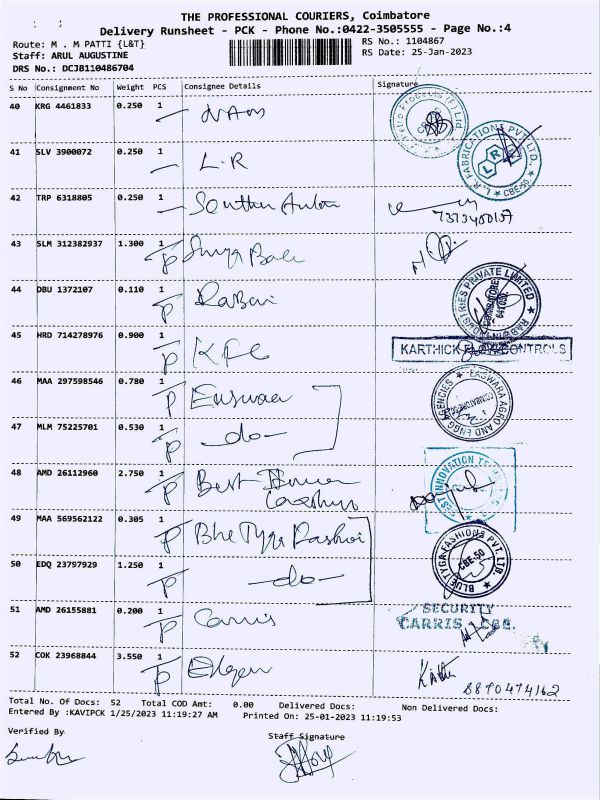 THE PROFESSIONAL COURIERS, Coimbatore
Delivery Runsheet - PCK - Phone No.:0422-3505555 - Page No.:4
Route: M . M PATTI {L&T}
RS No.: 1104867
Staff: ARUL AUGUSTINE
RS Date: 25-Jan-2023
DRS No.: DCJB110486704
S No Consignment No Weight PCS Consignee Details Signature
40 KRG 4461833 0.250 1
41 SLV 3900072 0.250 1 L.R
R. FABRICATIONS PVT. LTD., L R CBE-50
42 TRP 6318805 0.250 1
43 SLM 312382937 1.300 1
44 DBU 1372107 0.110 1
INDUSTRIES PRIVATE LIMITED COIMBATORE
45 HRD 714278976 0.900 1
KARTHICK CONTROLS
46 MAA 297598546 0.780 1
EASWARA AGRO AND ENGG AGENCIES
47 MLM 75225701 0.530 1 -do-
48 AMD 26112960 2.750 1 Best
49 MAA 569562122 0.305 1
50 EDQ 23797929 1.250 1 -do-
BLUE TYGA FASHIONS PVT. LTD. CBE-50
51 AMD 26155881 0.200 1 Carris
SECURITY
CARRIS, CBE.
52 COK 23968844 3.550 1
8870474162
Total No. Of Docs: 52 Total COD Amt: 0.00 Delivered Docs: Non Delivered Docs:
Entered By :KAVIPCK 1/25/2023 11:19:27 AM Printed On: 25-01-2023 11:19:53
Verified By
Staff Signature